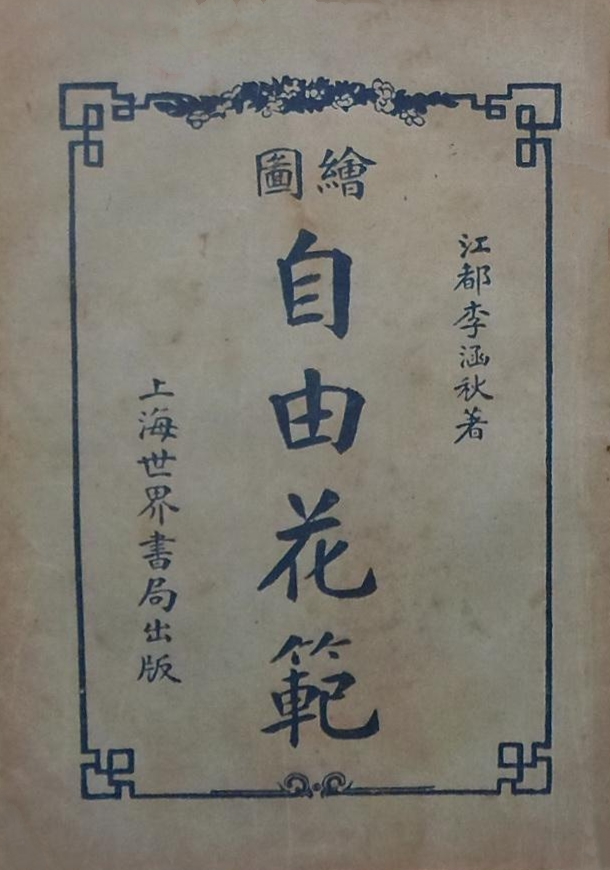 江都李涵秋著
繪圖
自由花範
上海世界書局出版